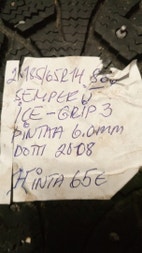 2kpl 185/65R14 80€
SEMPERIT
ICE-GRIP 3
PINTAA 6.0mm
DOT 2008
HINTA 65€